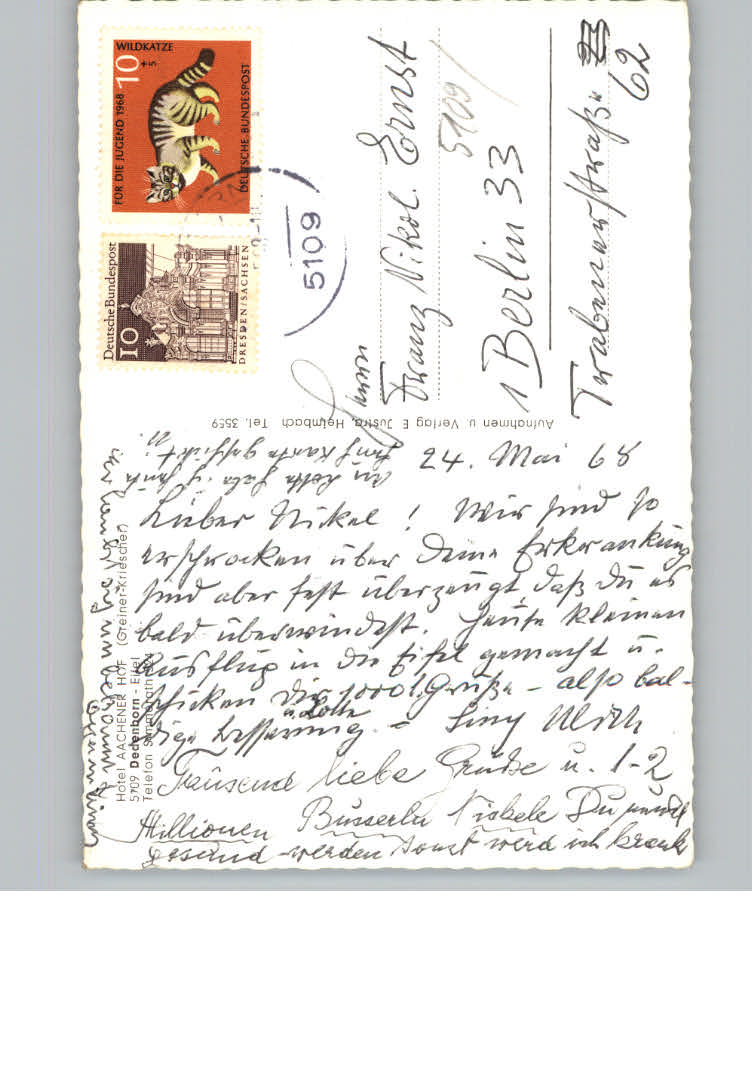 WILDKATZE
10
+5
FÜR DIE JUGEND 1968
DEUTSCHE BUNDESPOST
Deutsche Bundespost
10
DRESDEN/SACHSEN
5109
Herrn
Franz Nikol. Ernst
5109
1 Berlin 33
Trabenerstraße 23
62
Aufnahmen u. Verlag E. Justra, Heimbach Tel. 3559
24. Mai 68
Lieber Nickel! Wir sind so
erschrocken über Deine Erkrankung
sind aber fest überzeugt, daß Du es
bald überwindest. Heute kleinen
Ausflug in die Eifel gemacht u.
schicken Dir 1000 Grüße – also bal-
dige Besserung –
u. Lotte
Tausend liebe Grüße u. 1-2
Millionen Busserln Nickele Du
gesund werden sonst werd ich krank
Hotel AACHENER HOF (Greiner-Kriescher)
5109 Dedenborn - Eifel
Telefon Simmerath